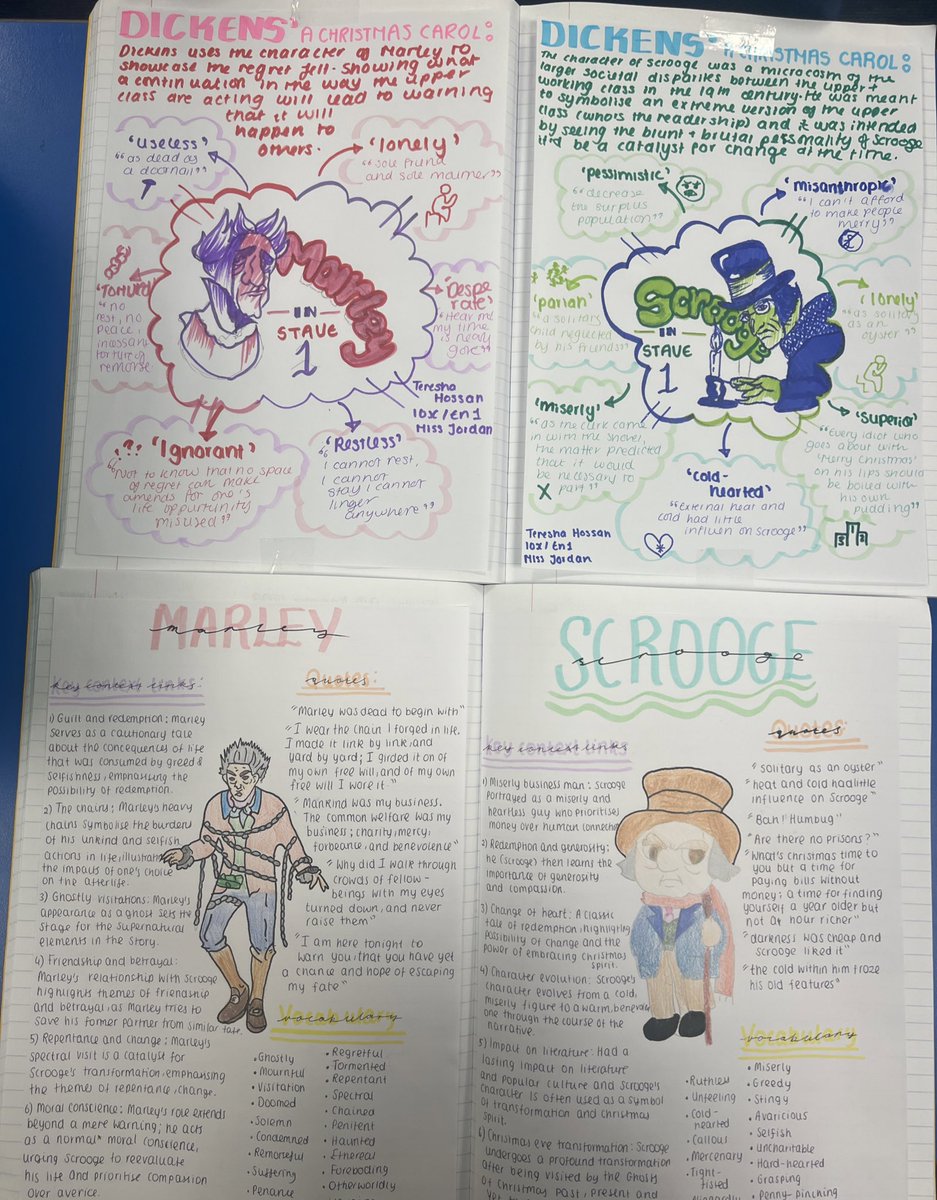 DICKENS' A CHRISTMAS CAROL:
Dickens uses the character of Marley to
showcase the regret felt. Showing what
a continuation in the way the upper
class are acting will lead to warning
that it will
happen to
others.
'useless'
"as dead as
a doornail"
'lonely'
"sole friend
and sole mourner"
'Tortured'
"no
rest, no
peace,
incessant
torture of
remorse
Marley
IN
STAVE
1
'Desperate'
"Hear me
my time
is nearly
gone"
Teresha
Hossan
10x/En1
Miss Jordan
?? 'Ignorant'
"Not to know that no space
of regret can make
amends for one's
life oppurtunity
misused"
'Restless'
"I cannot rest,
I cannot
stay I cannot
linger
anywhere"
DICKENS' A CHRISTMAS CAROL:
The character of Scrooge was a microcosm of the
larger societal disparities between the upper +
working class in the 19th century. He was meant
to symbolise an extreme version of the upper
class (who's the readership) and it was intended
by seeing the blunt + brutal personality of Scrooge
it'd be a catalyst for change at the time.
'pessimistic'
"decrease
the surplus
population"
'misanthropic'
"I can't afford
to make people
merry"
'pariah'
"a solitary
child neglected
by his friends"
Scrooge
IN
STAVE
1
'lonely'
"as solitary
as an
oyster"
'miserly'
"as the clerk came
in with the shovel,
the matter predicted
that it would
be necessary to
part"
'cold-
hearted'
"External heat and
cold had little
influen on Scrooge"
'Superior'
"Every idiot who
goes about with
'Merry Christmas'
on his lips should
be boiled with
his own
pudding"
Teresha Hossan
10x/En1
Miss Jordan
MARLEY
marley
Key context links:
key context links
1) Guilt and redemption: Marley
serves as a cautionary tale
about the concequences of life
that was consumed by greed &
selfishness, emphasising the
possibility of redemption.
2) The chains: Marley's heavy
chains symbolise the burden
of his unkind and selfish
actions in life, illustrating
the impacts of one's choice
on the afterlife.
3) Ghostly visitations: Marley's
appearance as a ghost sets the
stage for the supernatural
elements in the story.
4) Friendship and betrayal:
Marley's relationship with Scrooge
highlights themes of friendship
and betrayal, as Marley tries to
save his former partner from similar fate.
5) Repentance and change: Marley's
spectral visit is a catalyst for
Scrooge's transformation, emphasising
the themes of repentance, change.
6) Moral conscience: Marley's role extends
beyond a mere warning; he acts
as a normal* moral conscience,
urging Scrooge to reevaluate
his life and prioritise compassion
over avarice.
Quotes:
quotes
"Marley was dead to begin with"
"I wear the chain I forged in life.
I made it link by link, and
yard by yard; I girded it on of
my own free will, and of my own
free will I wore it."
"Mankind was my business.
The common welfare was my
business; charity, mercy,
forbeance, and benevolence"
"Why did I walk through
crowds of fellow-
beings with my eyes
turned down, and never
raise them"
"I am here tonight to
warn you, that you have yet
a chance and hope of escaping
my fate"
Vocabulary
vocabulary
• Ghostly
• Mournful
• Visitation
• Doomed
• Solemn
• Condemned
• Remorseful
• Suffering
• Penance
• Regretful
• Tormented
• Repentant
• Spectral
• Chained
• Penitent
• Haunted
• Ethereal
• Foreboding
• Otherworldly
SCROOGE
scrooge
Key context links
key context links
1) Miserly business man: Scrooge
portrayed as a miserly and
heartless guy who prioritises
money over human connection
2) Redemption and generosity:
he (Scrooge) then learns the
importance of generosity
and compassion.
3) Change of heart: A classic
tale of redemption, highlighting
possibility of change and the
power of embracing christmas
spirit.
4) Character evolution: Scrooge's
character evolves from a cold,
miserly figure to a warm, benevolent
one through the course of the
narrative.
5) Impact on literature: Had a
lasting impact on literature
and popular culture and Scrooge's
character is often used as a symbol
of transformation and christmas
spirit.
6) Christmas eve transformation: Scrooge
undergoes a profound transformation
after being visited by the Ghosts
of Christmas Past, present and
Quotes
quotes
"solitary as an oyster"
"heat and cold had little
influence on Scrooge"
"Bah! Humbug"
"Are there no prisons?"
"What's christmas time to
you but a time for
paying bills without
money; a time for finding
yourself a year older but
not an hour richer"
"darkness was cheap and
Scrooge liked it"
"the cold within him froze
his old features"
Vocabulary
vocabulary
• Ruthless
• Unfeeling
• Cold-
hearted
• Callous
• Mercenary
• Tight-
fisted
• Miserly
• Greedy
• Stingy
• Avaricious
• Selfish
• Uncharitable
• Hard-hearted
• Grasping
• Penny-pinching